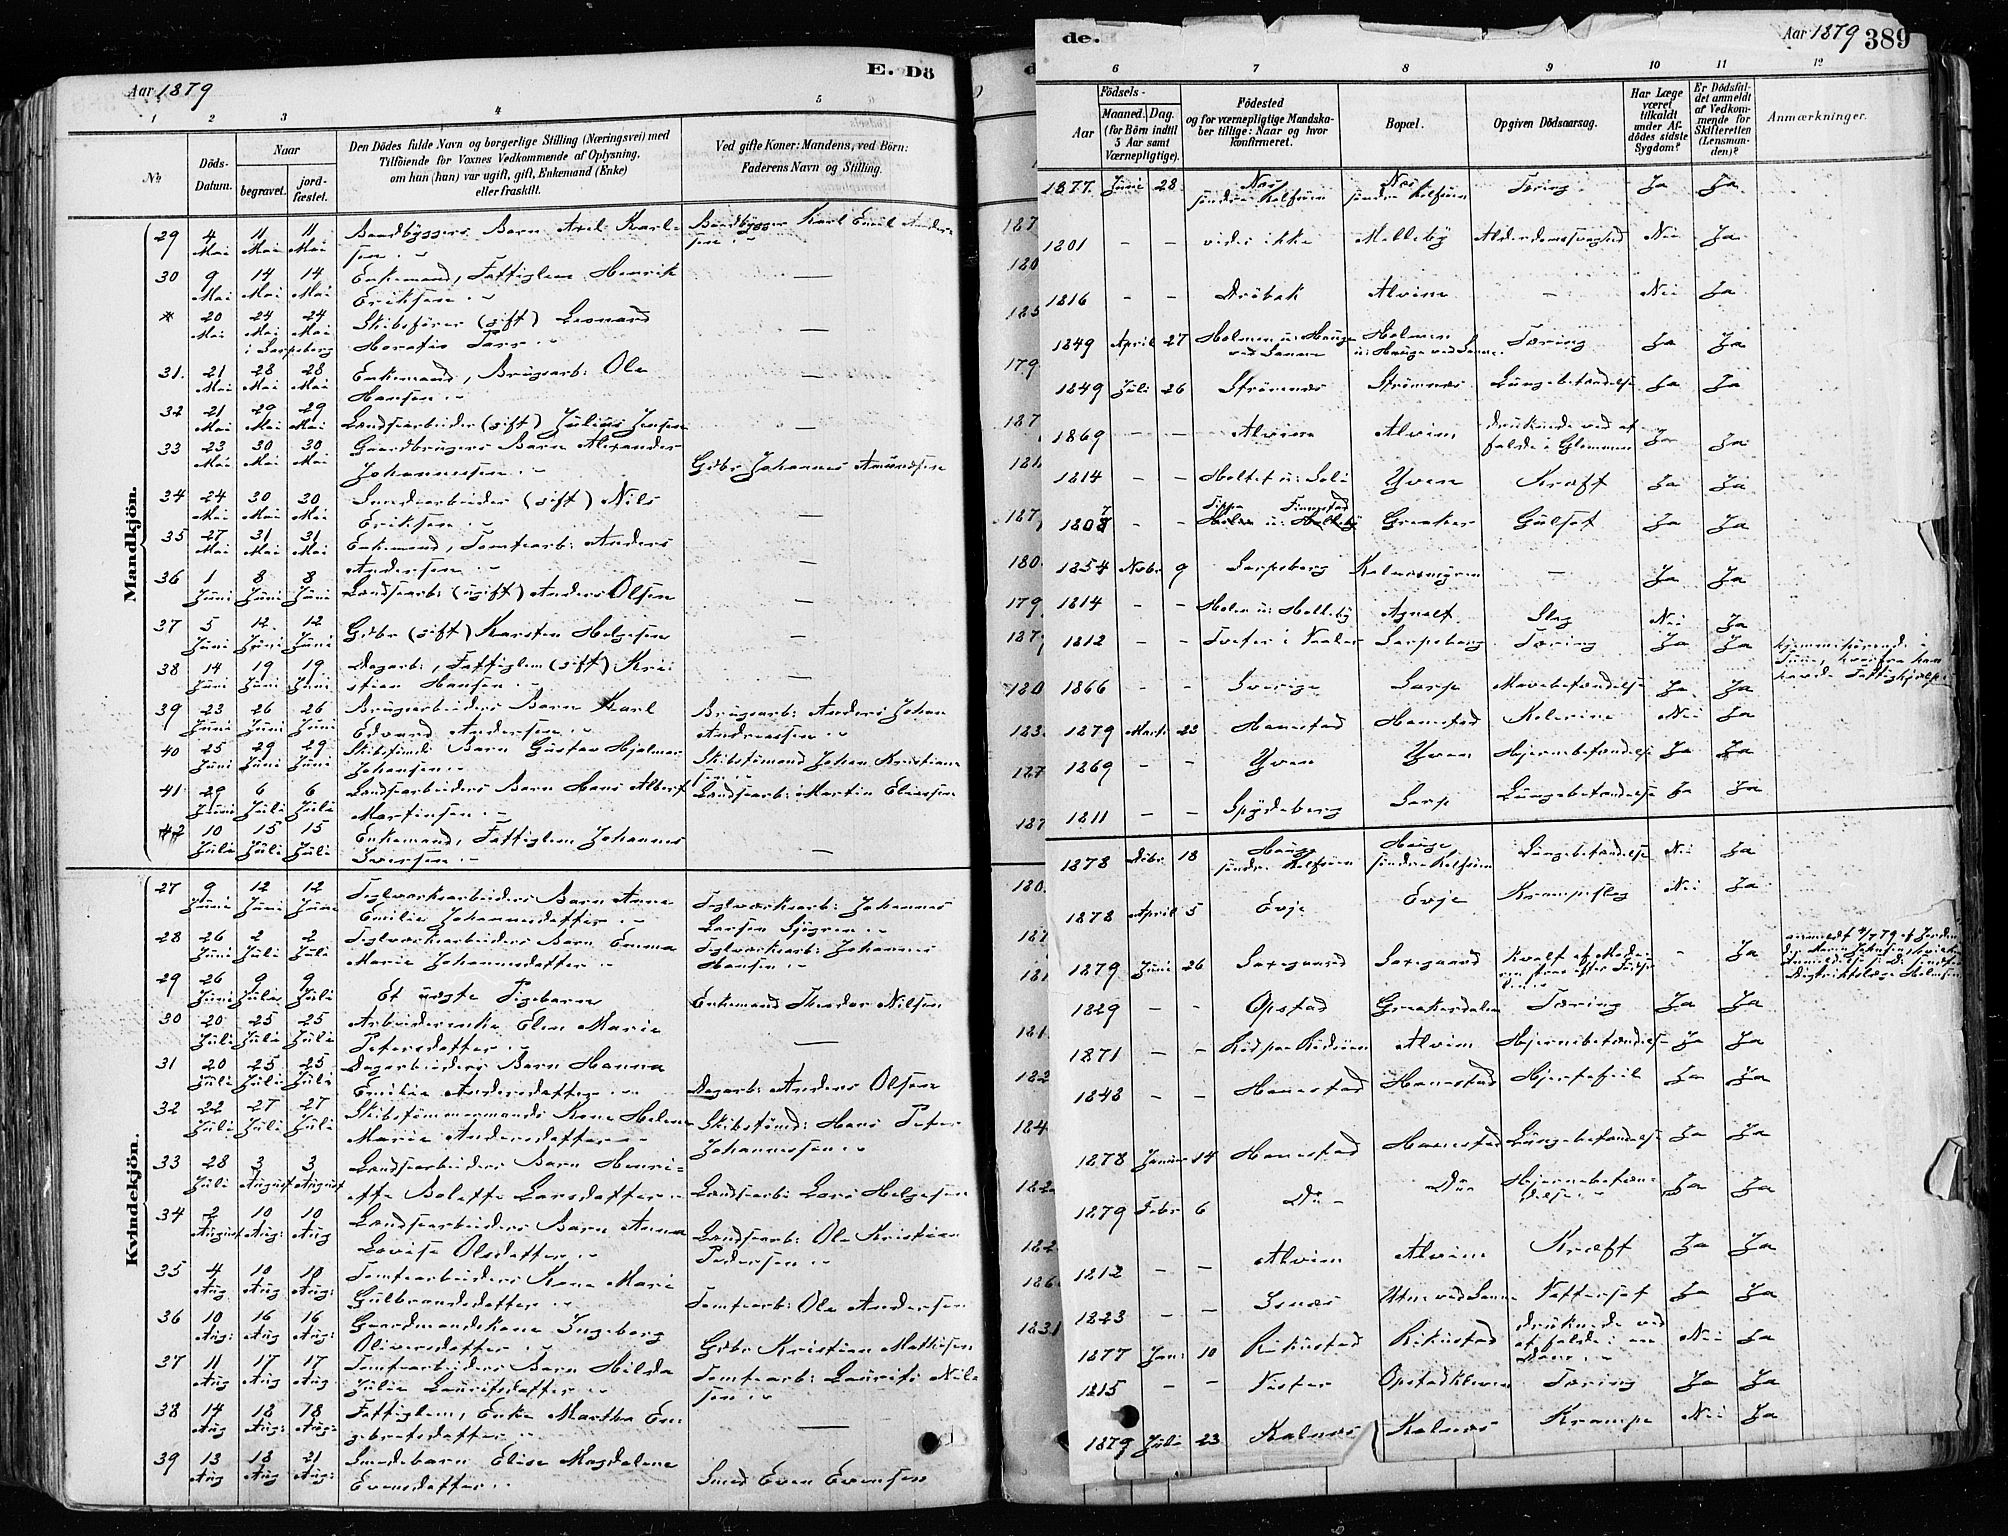 Aar 1879
E. Dö
1 2 3 4 5
No
Döds-Datum.
Naar
begravet.
jordfæstet.
Den Dödes fulde Navn og borgerlige Stilling (Næringsvei) med
Tilföiende for Voxnes Vedkommende af Oplysning,
om han (hun) var ugift, gift, Enkemand (Enke)
eller fraskilt.
Ved gifte Koner: Mandens, ved Börn:
Faderens Navn og Stilling.
Mandkjön.
29 4 Mai 11 Mai 11 Mai Baadbyggers Barn Axel Karlsen Baadbygger Karl Emil Andersen
30 9 Mai 14 Mai 14 Mai Enkemand, Fattiglem Henrik Eriksen —
* 20 Mai 24 Mai 24 Mai i Sarpsborg Skibsförer (gift) Leonard Horatio —
31. 21 Mai 28 Mai 28 Mai Enkemand, Brugsarb: Ole Hansen —
32 21 Mai 29 Mai 29 Mai Landsearbeider (gift) Julius Jensen —
33 23 Mai 30 Mai 30 Mai Gaardbrugers Barn Alexander Johannessen Gdbr Johannes Amundsen
34 24 Mai 30 Mai 30 Mai (gift) Nils Eriksen —
35 27 Mai 31 Mai 31 Mai Enkemand, Tomtearb: Anders Andersen —
36 1 Juni 8 Juni 8 Juni Landsearb: (ugift) Anders Olsen —
37 5 Juni 12 Juni 12 Juni Gdbr (gift) Karsten Helgesen —
38 14 Juni 19 Juni 19 Juni Dagarb:, Fattiglem (gift) Kristian Hansen —
39 23 Juni 26 Juni 26 Juni Brugsarbeiders Barn Karl Edvard Andersen Brugsarb: Anders Johan Andreassen
40 25 Juni 29 Juni 29 Juni Skibstömds Barn Gustav Hjalmar Johansen Skibstömand Johan Kristiansen
41 29 Juni 6 Juli 6 Juli Landsearbeiders Barn Hans Albert Martinsen Landsearb: Martin Eliassen
42 10 Juli 15 Juli 15 Juli Enkemand, Fattiglem Johannes Iversen —
Kvindekjön.
27 9 Juni 12 Juni 12 Juni Teglværksarbeiders Barn Anne Emilie Johannesdatter Teglværksarb: Johannes Larsen Sjögren
28 26 Juni 2 Juli 2 Juli Teglværksarbeiders Barn Emma Marie Johannesdatter Teglværksarb: Johannes Hansen
29 26 Juni 9 Juli 9 Juli Et uægte Pigebarn Enkemand Theodor Nilsen
30 20 Juli 25 Juli 25 Juli Arbeiderenke Elen Marie Petersdatter —
31 20 Juli 25 Juli 25 Juli Dagarbeiders Barn Hanna Emilie Andersdatter Dagarb: Anders Olsen
32 22 Juli 27 Juli 27 Juli Skibstömmermands Kone Helene Marie Andersdatter Skibstömd: Hans Peter Johannessen
33 28 Juli 3 August 3 August Landsearbeiders Barn Henriette Bolette Larsdatter Landsearb: Lars Helgesen
34 2 August 10 Aug: 10 Aug Landsearbeiders Barn Anna Lovise Olsdatter Landsearb: Ole Kristian Pedersen
35 4 Aug 10 Aug 10 Aug: Tomtearbeiders Kone Mari Gulbrandsdatter Tomtearb: Ole Andersen
36 10 Aug: 16 Aug 16 Aug: Gaardmandskone Ingeborg Oliversdatter Gdbr Kristian Mathisen
37 11 Aug 17 Aug 17 Aug Tomtearbeiders Barn Hilda Julie Lauritsdatter Tomtearb: Laurits Nilsen
38 14 Aug 18 Aug 18 Aug: Fattiglem, Enke Martha Engebretsdatter —
39 13 Aug 18 Aug 21 Aug: Smedebarn Elise Magdalene Evensdatter Smed Even Evensen
de.
Aar 1879 389
6 7 8 9 10 11 12
Födsels-
Aar
Maaned. Dag.
(for Börn indtil
5 Aar samt
Værnepligtige).
Födested
og for værnepligtige Mandska-
ber tillige: Naar og hvor
konfirmeret.
Bopæl.
Opgiven Dödsaarsag.
Har Læge
været
tilkaldt
under Af-
dödes sidste
Sygdom?
Er Dödsfal-
det anmeldt
af Vedkom-
mende for
Skifteretten
(Lensman-
den)?
Anmærkninger.
1877. Juni 28 Næs söndre Kolfsöen Næs söndre Kolfsöen Tæring Ja Ja
1801 - - vides ikke Melleby Alderdomssvaghed Nei Ja
1816 - - Dröbak Alvim - Nei Ja
1849 April 27 Holmen u: Hauge ved Sannæs Holmen u: Hauge ved Sannæs Tæring Ja Ja
1849 Juli 26 Strömnæs Strömnæs Lungebetændelse Ja Ja
1869 - - Alvim Alvim druknede ved at falde i Glommen Ja Ja
1814 - - Holtet u: Soli Yven Kræft Ja Ja
1807 - - Greaker Gulsot Ja Ja
1854 Novbr 9 Sarpsborg - Ja Ja
1814 - - Holen u: Holleby Agnalt Slag Nei Ja
1812 - - Tveter i Vaaler Sarpsborg Tæring Ja Ja hjemmehörende i Tune, hvorfra han havde Fattighjælp
1866 - - Sverige Sarp Mavebetændelse Ja Ja
1879 Marts 23 Hannestad Hannestad Kolerine Nei Ja
1869 - - Yven Yven Hjernebetændelse Ja Ja
1811 - - Spydeberg Sarp Lungebetændelse Ja Ja
1878 Debr. 18 Hauge söndre Kolfsöen Hauge söndre Kolfsöen Lungebetændelse Nei Ja
1878 April 5 Evje Evje Krampeslag Nei Ja
1879 Juni 26 Kvalt af Moderen strax efter Födselen - Ja
1829 - - Opstad Greakersdalen Tæring Ja Ja
1871 - - Alvim Hjernebetændelse Ja Ja
1848 - - Hannestad Hannestad Hjertefeil Ja Ja
1878 Januar 14 Hannestad Hannestad Lungebetændelse Ja Ja
1879 Febr 6 Do - Do Hjernebetændelse Ja Ja
1812 - - Alvim Alvim Kræft Ja Ja
1823 - - Isnæs Utne ved Sannes Ja Ja
1877 Jan: 10 Rikustad Rikustad druknede ved at falde i en Nei Ja
1815 - - Opstad Tæring Ja Ja
1879 Juli 23 Kalnæs Kalnæs Krampe Nei Ja